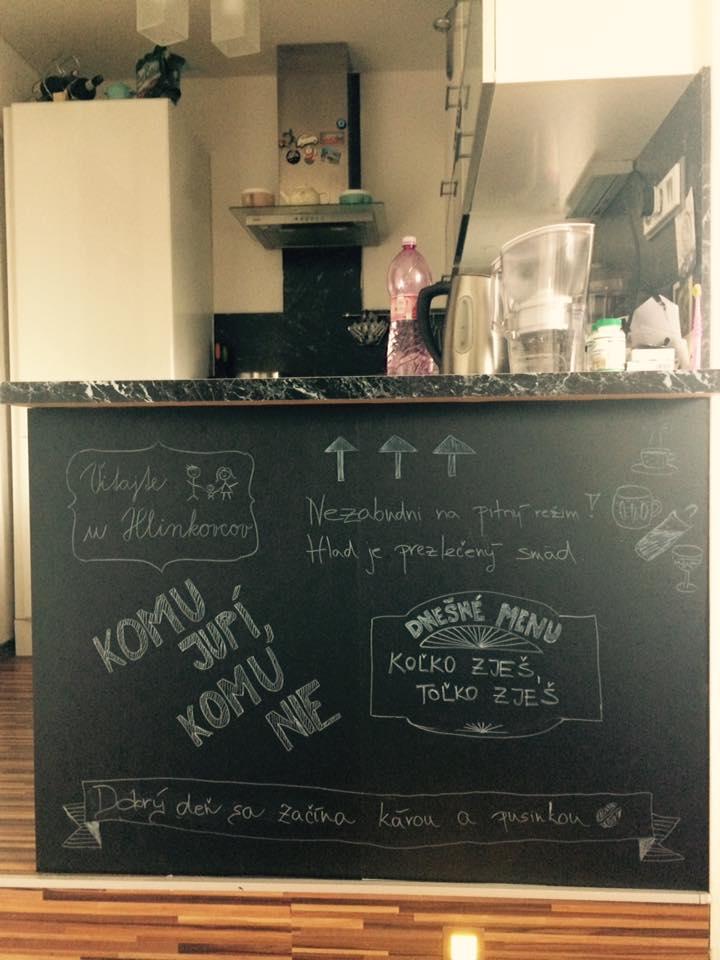 Vitajte
u Hlinkovcov
Nezabudni na pitný režim!
Hlad je prezlečený smäd
KOMU
JUPÍ,
KOMU
NIE
DNEŠNÉ MENU
KOĽKO ZJEŠ,
TOĽKO ZJEŠ
Dobrý deň sa začína kávou a pusinkou